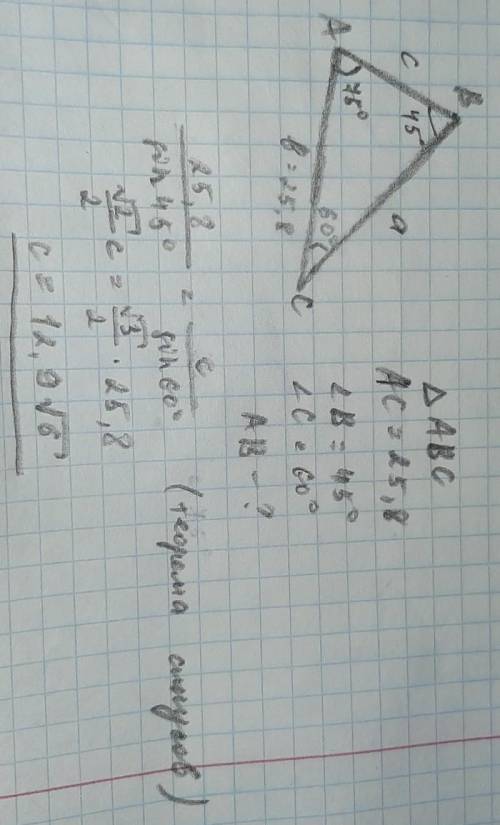 B
c
45
A
75°
a
60°
b = 25,8
C
△ ABC
AC = 25,8
∠B = 45°
∠C = 60°
AB - ?
25,8 / sin 45° = c / sin 60° (теорема синусов)
√2/2 c = √3/2 · 25,8
c = 12,9√6